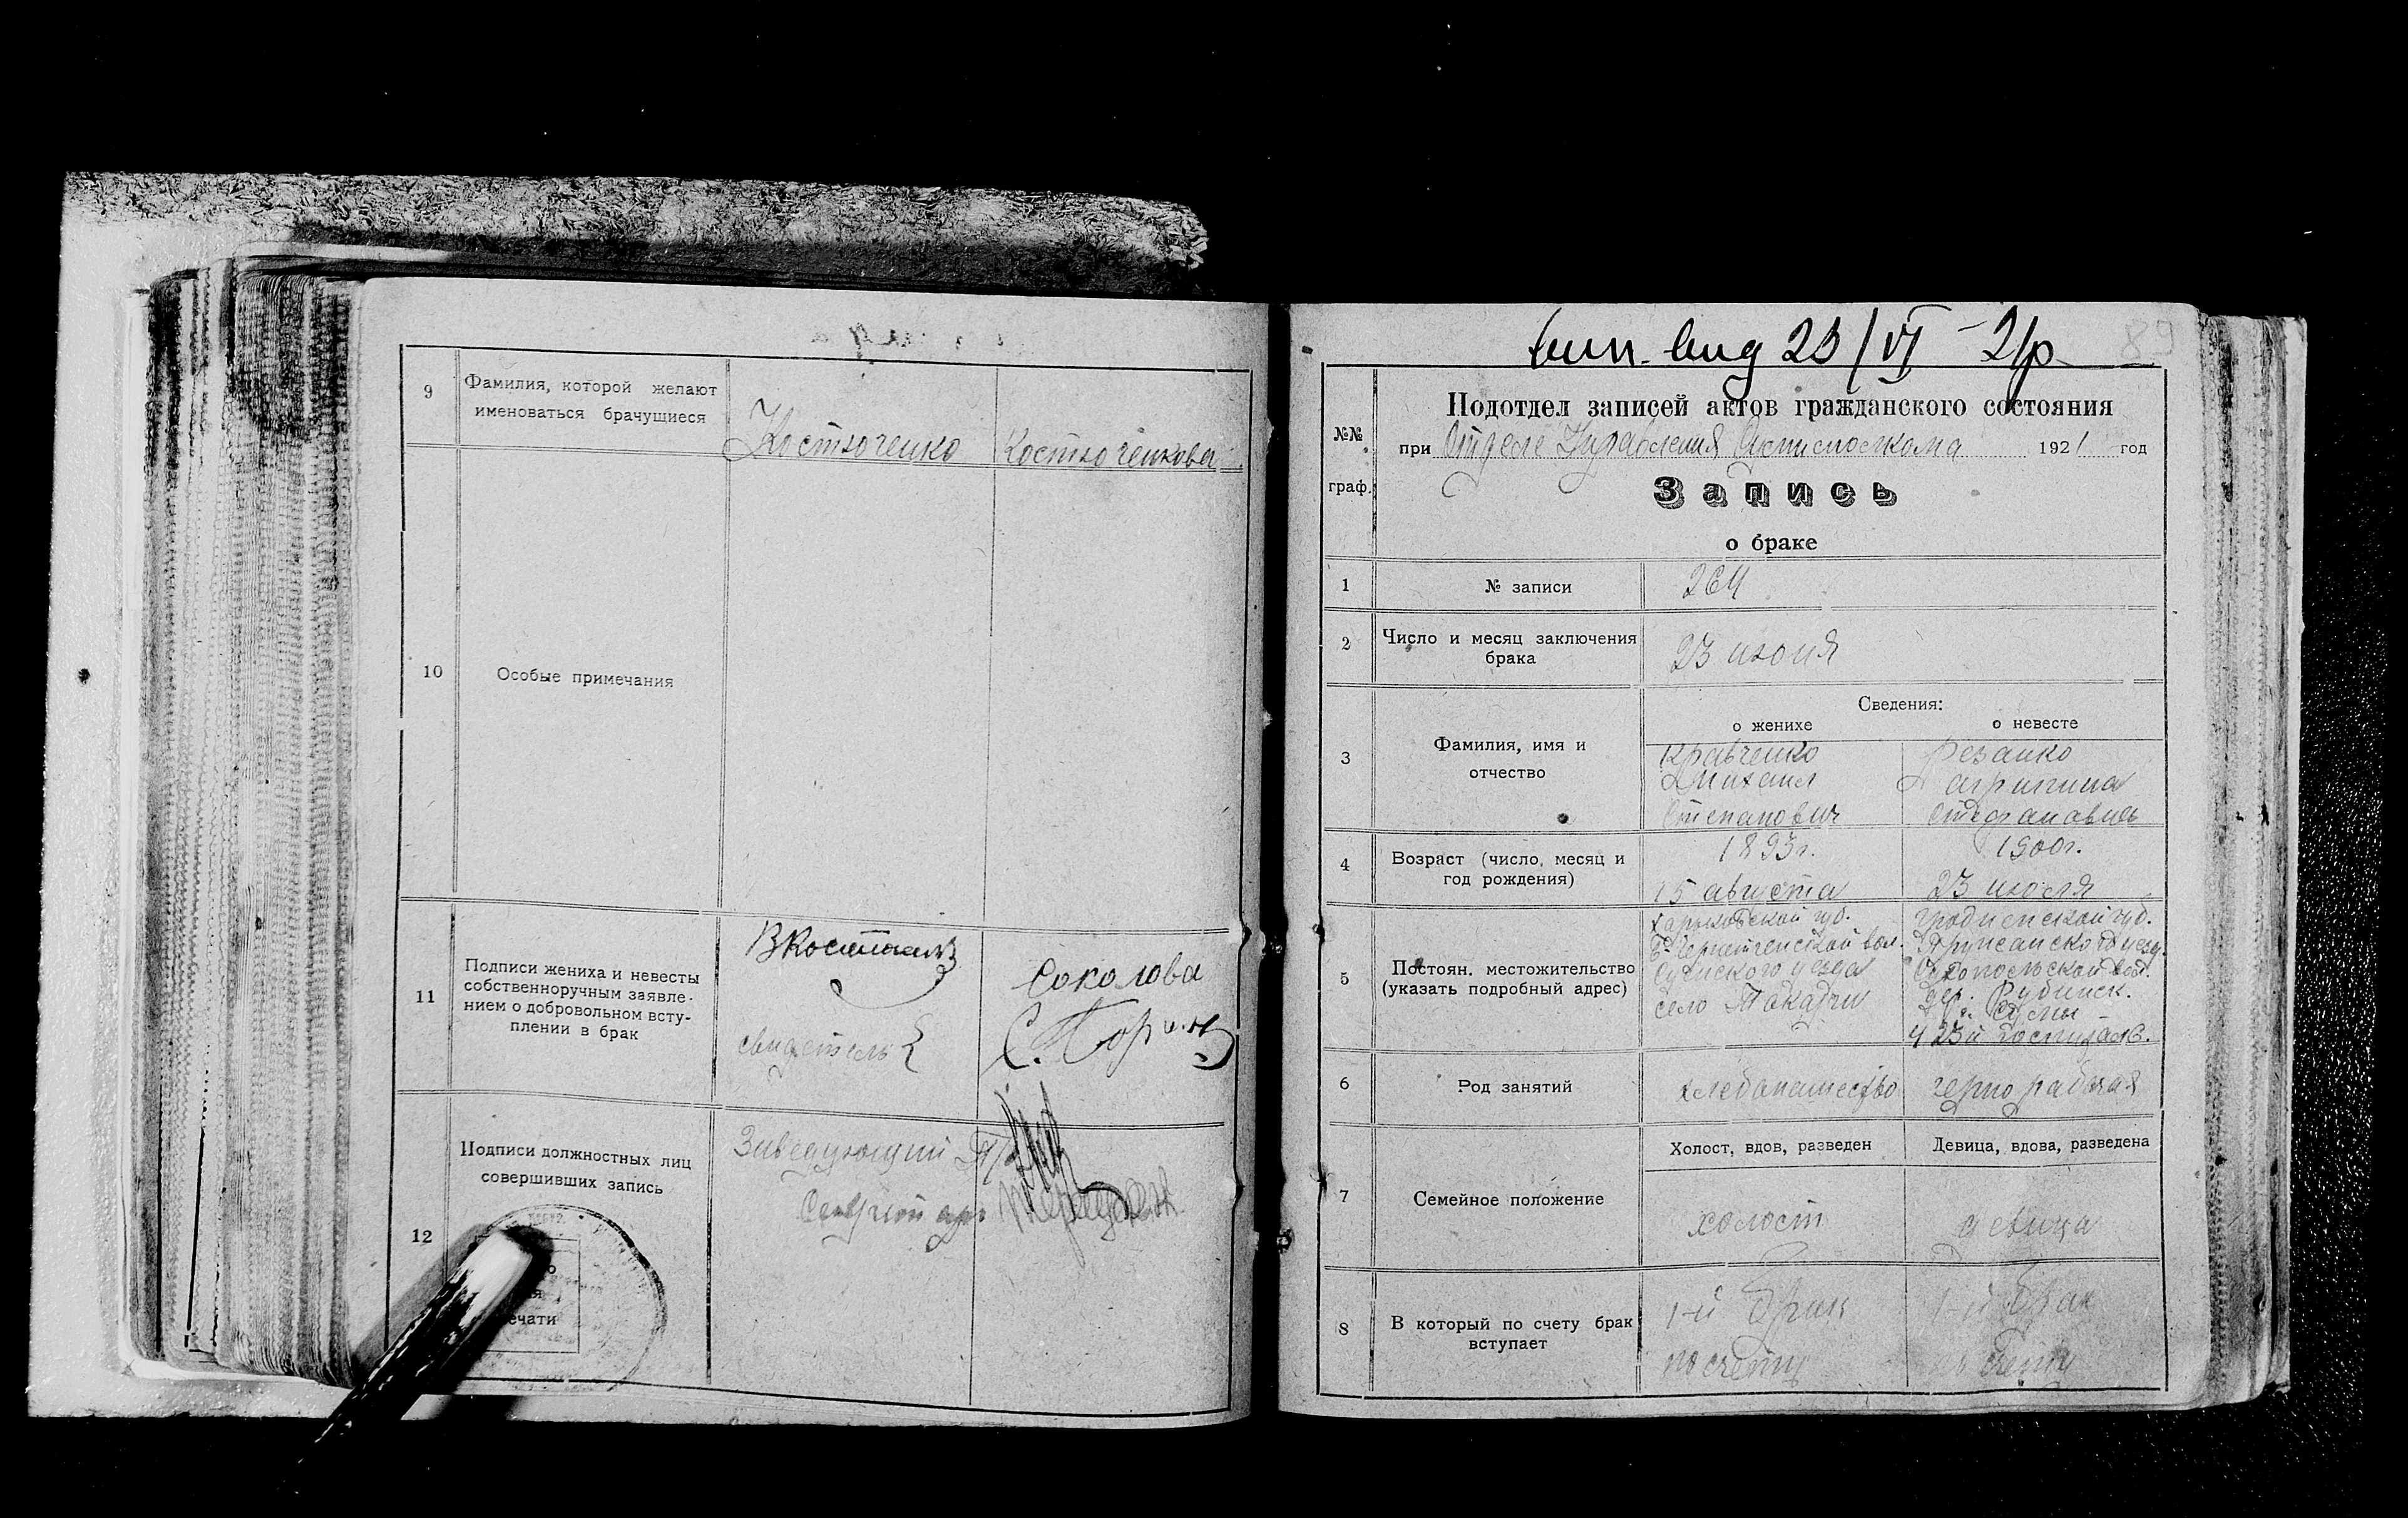 9
Фамилия, которой желают
именоваться брачущиеся
Костюченко
Костюченкова
10
Особые примечания
11
Подписи жениха и невесты
собственноручным заявле-
нием о добровольном всту-
плении в брак
Соколова
свидетель
12
Подписи должностных лиц
совершивших запись
Заведующий
ечати
23/VI
89
№№
граф.
Подотдел записей актов гражданского состояния
при Отделе Управления 1921 год
Запись
о браке
1
№ записи
264
2
Число и месяц заключения
брака
23 июня
3
Фамилия, имя и
отчество
Сведения:
о женихе
о невесте
Кравченко
Михаил
Степанович
Резанко
4
Возраст (число, месяц и
год рождения)
1893г.
15 августа
1900г.
23 июля
5
Постоян. местожительство
(указать подробный адрес)
Харьковской губ.
Сумского уезда
село Токари
Гродненской губ.
г. Сумы
6
Род занятий
хлебопашество
чернорабчая
7
Семейное положение
Холост, вдов, разведен
Девица, вдова, разведена
холост
девица
8
В который по счету брак
вступает
1-й брак
по счету
1-й брак
по счету